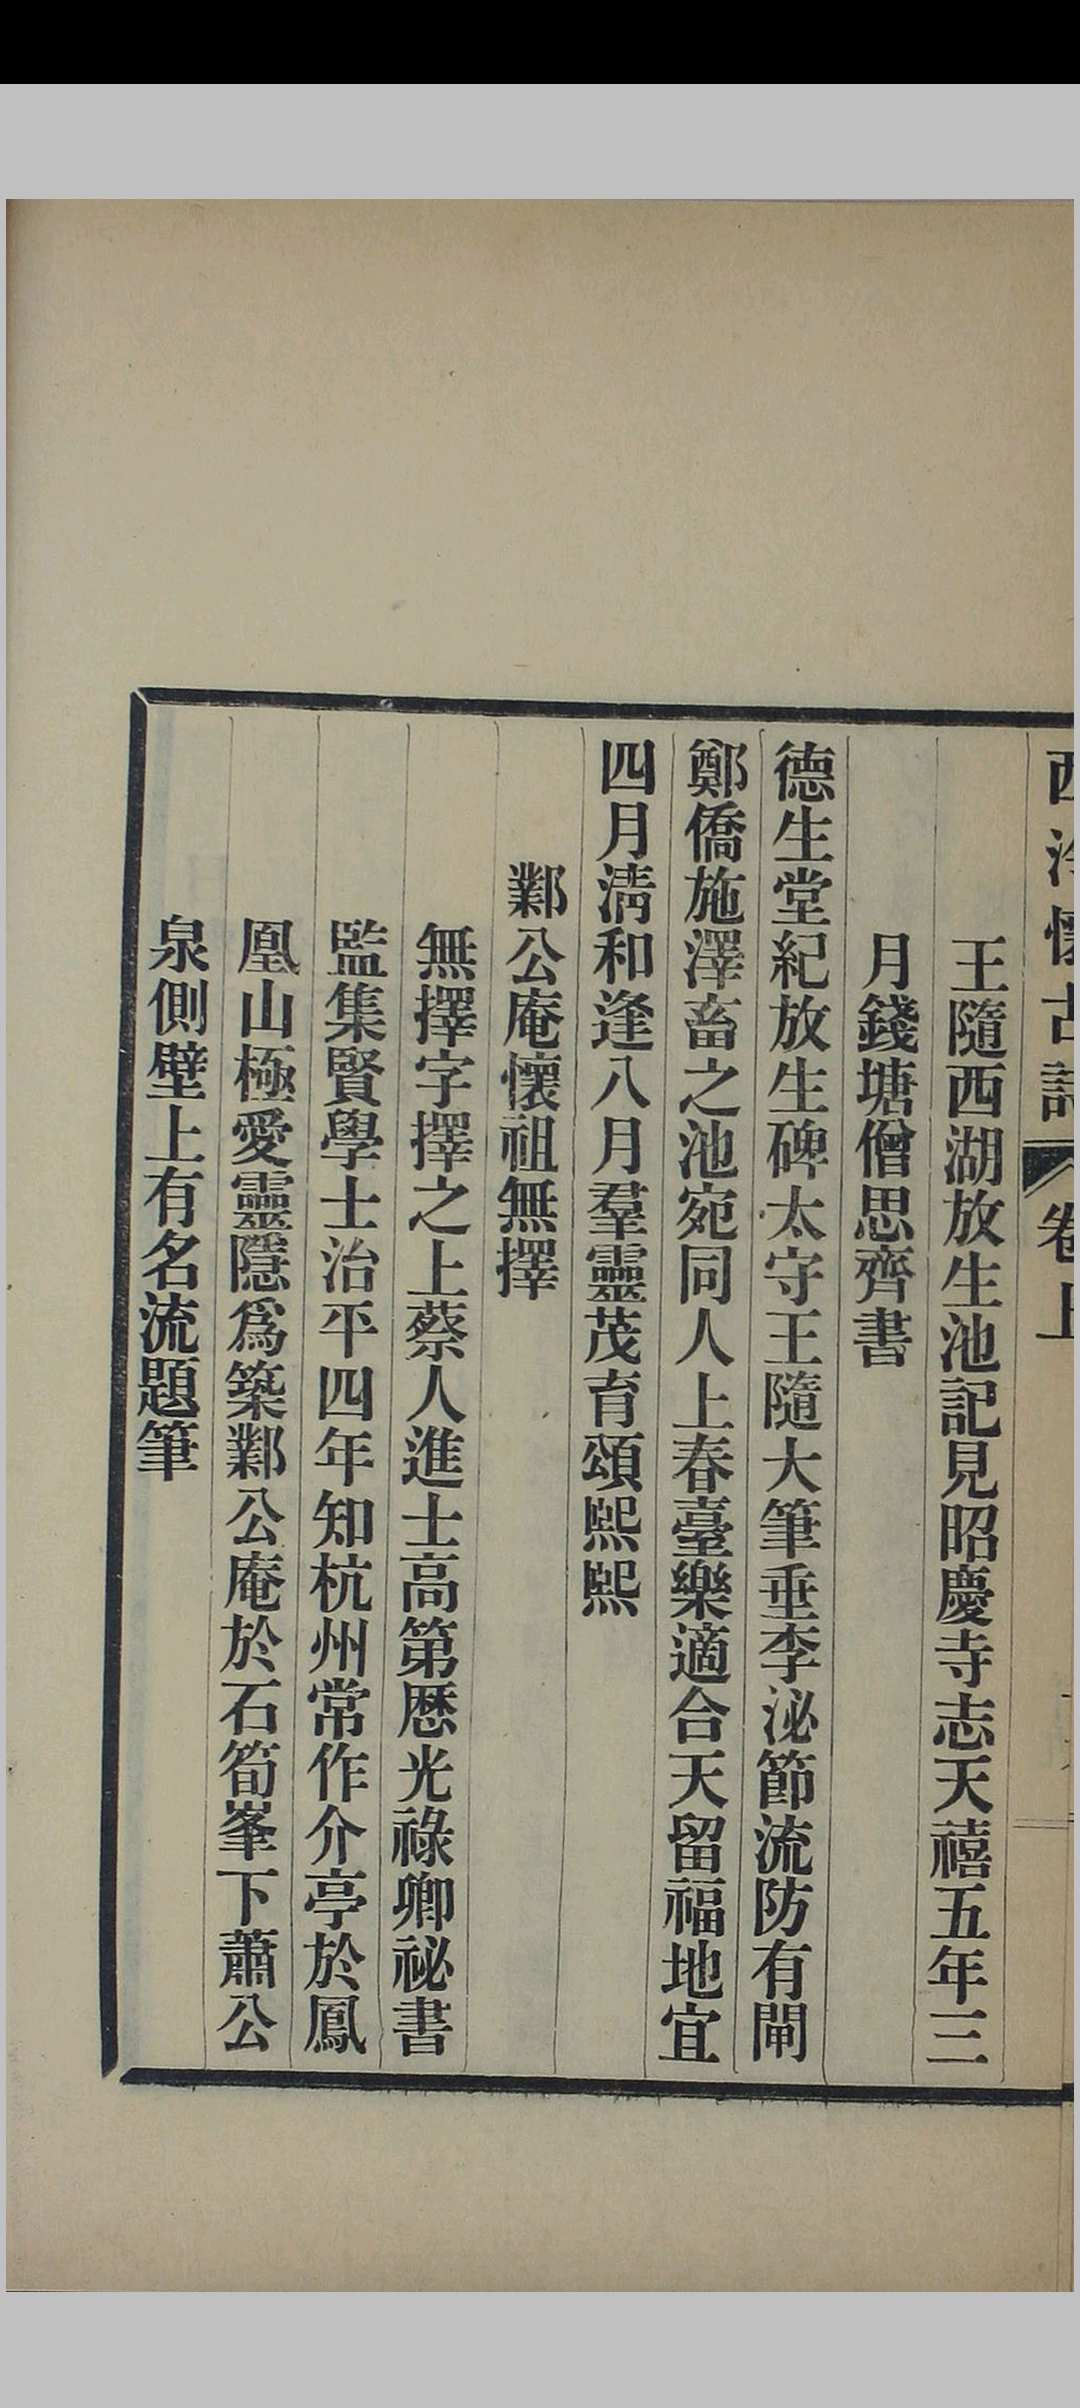 西泠懷古詩 卷上
王隨西湖放生池記見昭慶寺志天禧五年三
月錢塘僧思齊書
德生堂紀放生碑太守王隨大筆垂李泌節流防有閘
鄭僑施澤畜之池宛同人上春臺樂適合天留福地宜
四月清和逢八月羣靈茂育頌熙熙
鄴公庵懷祖無擇
無擇字擇之上蔡人進士高第歷光祿卿祕書
監集賢學士治平四年知杭州常作介亭於鳳
凰山極愛靈隱爲築鄴公庵於石筍峯下蕭公
泉側壁上有名流題筆